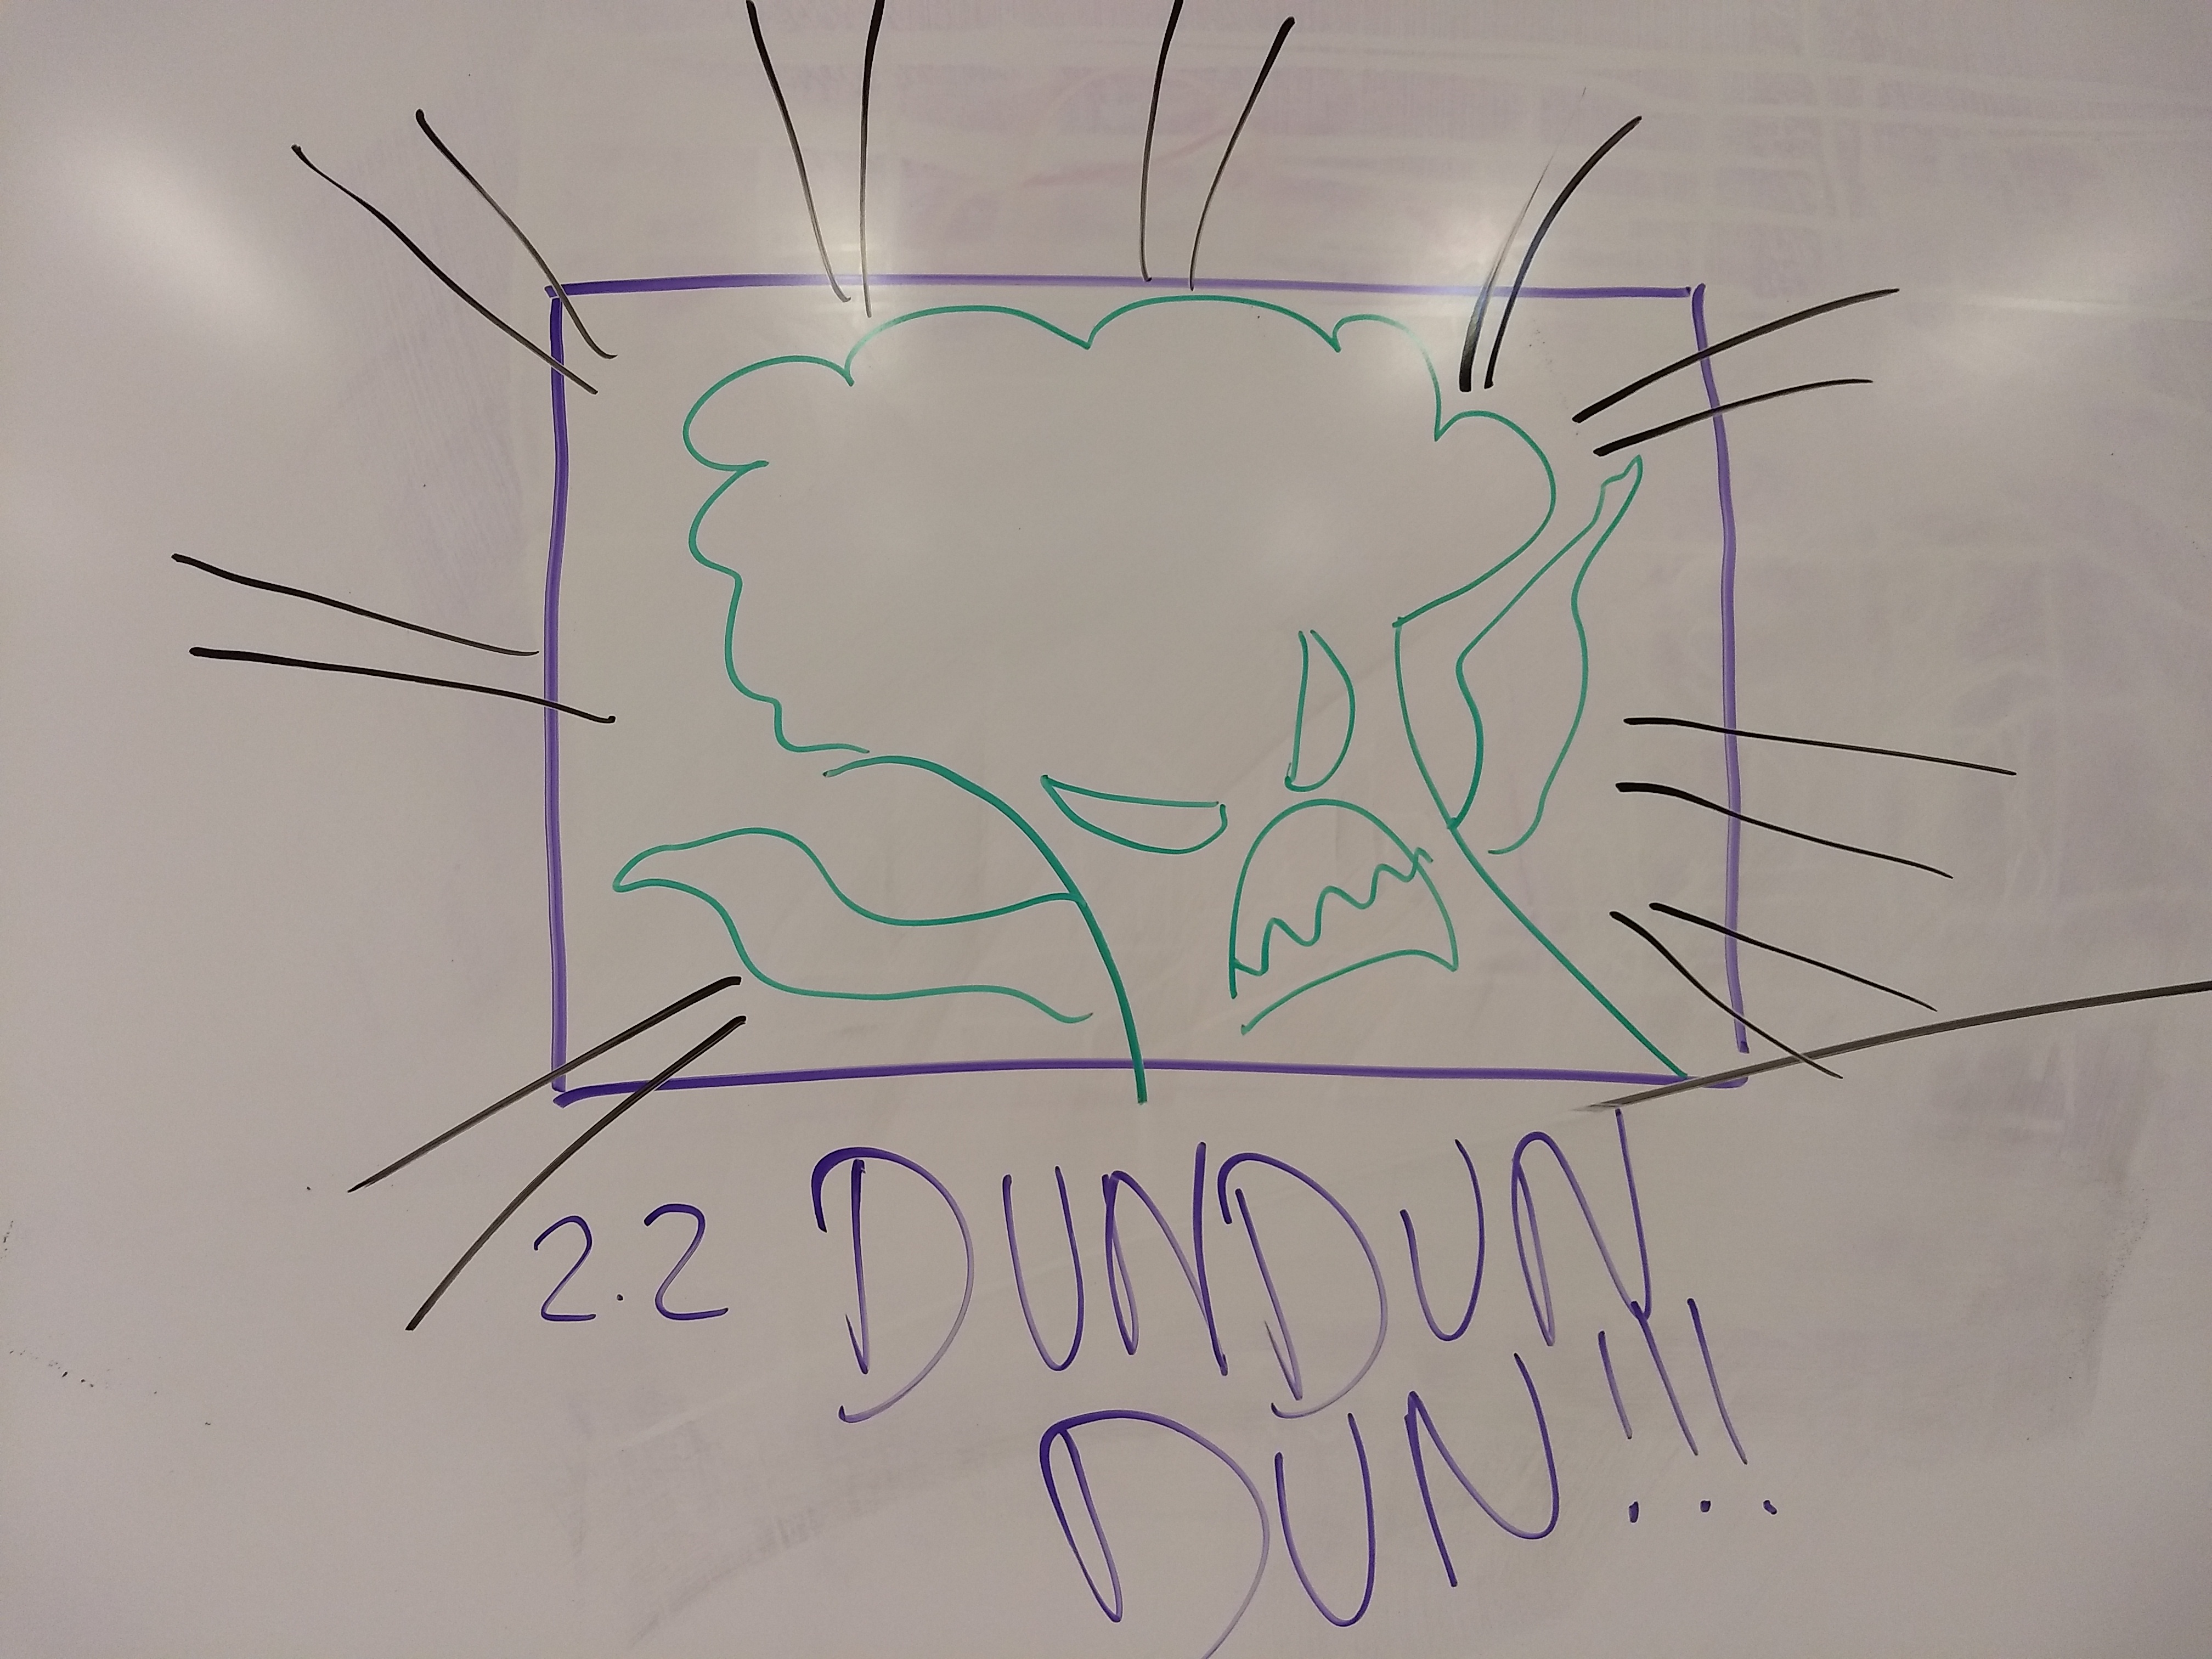 2.2 DUNDUN
DUN!!!